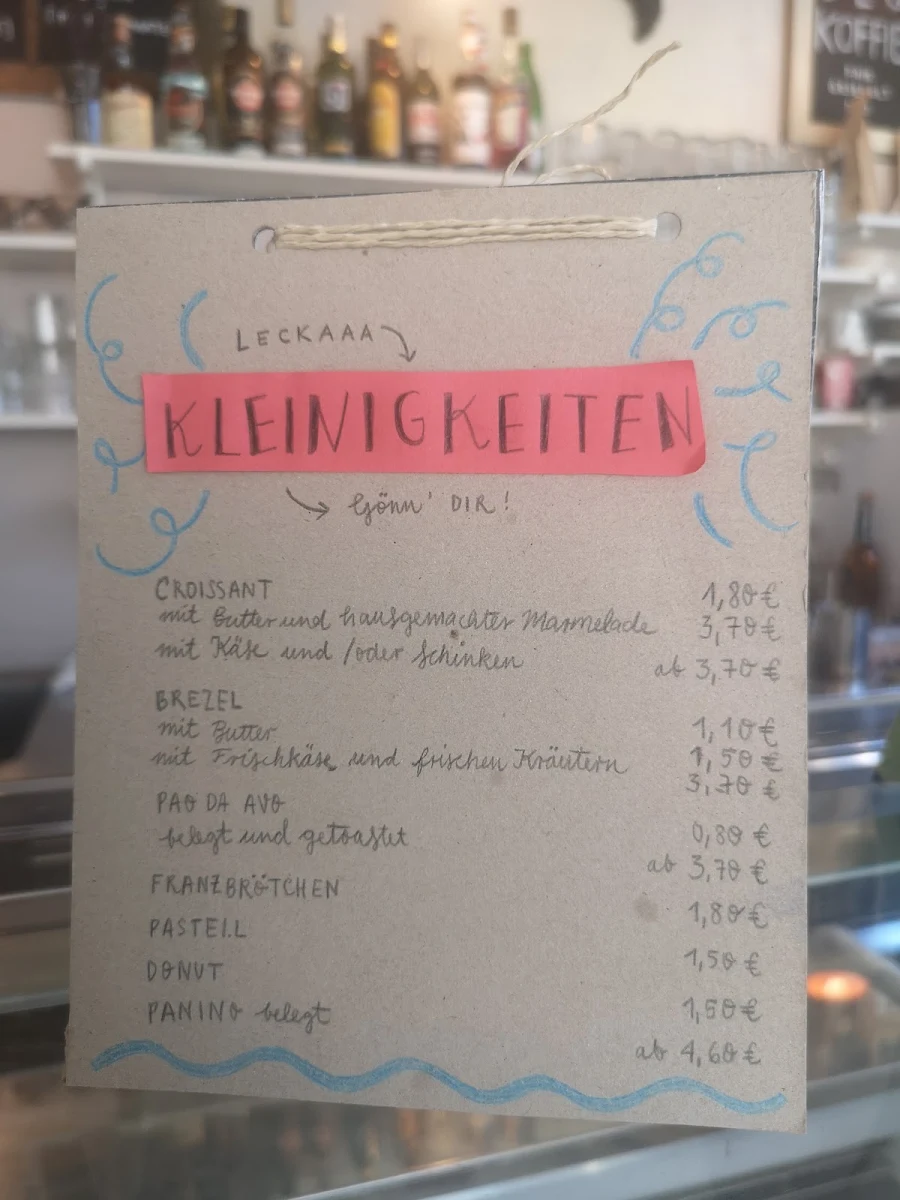 KOFFIE
LECKAAA
KLEINIGKEITEN
Gönn' DIR!
CROISSANT 1,80 €
mit Butter und hausgemachter Marmelade 3,70 €
mit Käse und/oder Schinken ab 3,70 €
BREZEL 1,10 €
mit Butter 1,50 €
mit Frischkäse und frischen Kräutern 3,70 €
PAO DA AVO 0,80 €
belegt und getoastet ab 3,70 €
FRANZBRÖTCHEN 1,80 €
PASTEIL 1,50 €
DONUT 1,50 €
PANINO belegt ab 4,60 €